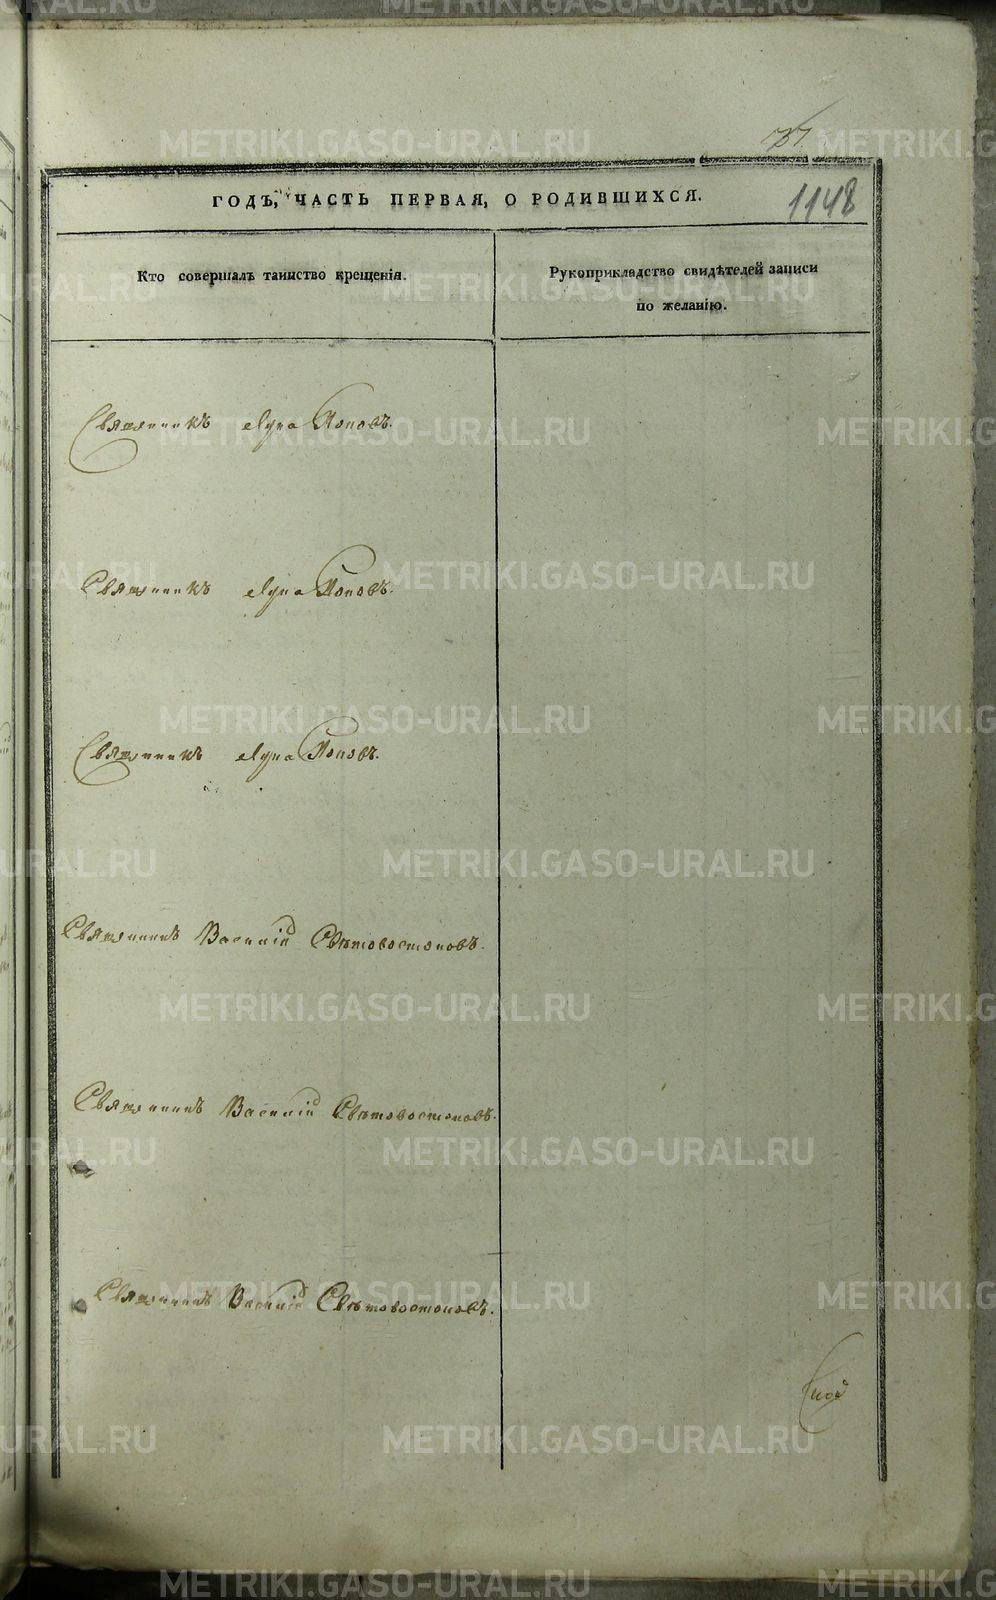 737
1148
ГОДЪ, ЧАСТЬ ПЕРВАЯ, О РОДИВШИХСЯ.
Кто совершалъ таинство крещенія.
Рукоприкладство свидѣтелей записи
по желанію.
Священникъ Лука Поповъ.
Священникъ Лука Поповъ.
Священникъ Лука Поповъ.
Священникъ Василій Свѣтовостоковъ.
Священникъ Василій Свѣтовостоковъ.
Священникъ Василій Свѣтовостоковъ.
METRIKI.GASO-URAL.RU